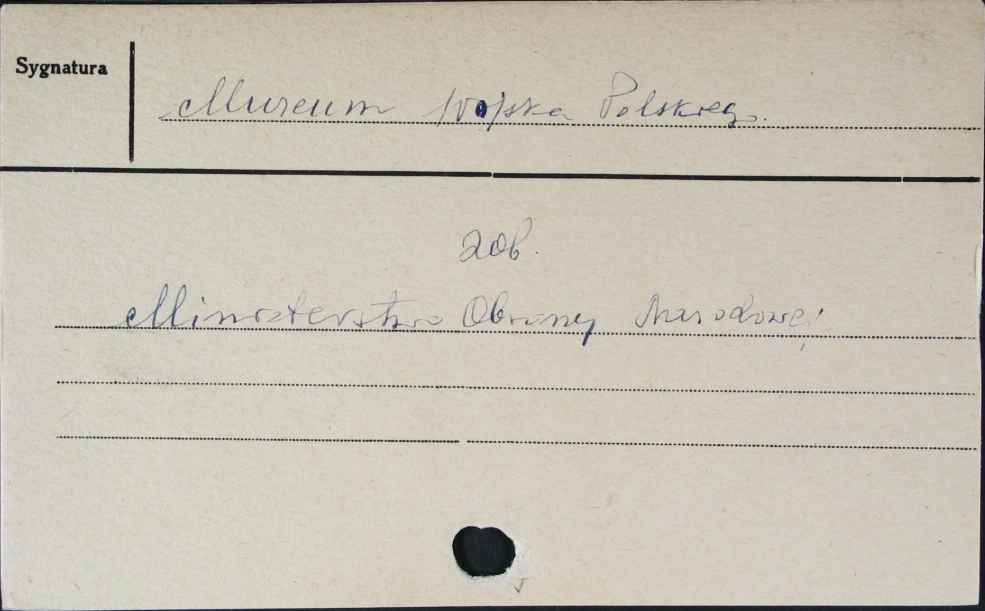 Sygnatura
Muzeum Wojska Polskiego.
zob.
Ministerstwo Obrony Narodowej